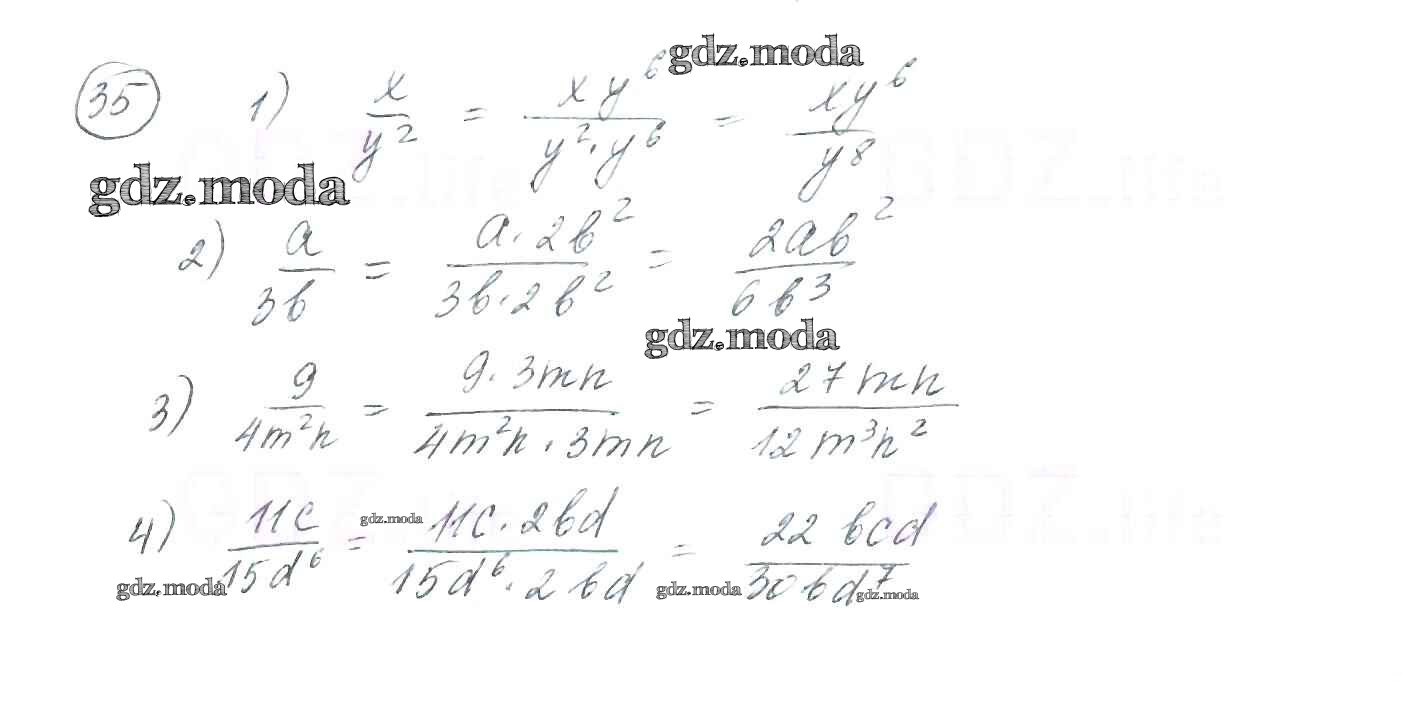 gdz.moda
35 1) x/y² = xy⁶/y²·y⁶ = xy⁶/y⁸
gdz.moda
2) a/3b = a·2b²/3b·2b² = 2ab²/6b³
gdz.moda
3) 9/4m²n = 9·3mn/4m²n·3mn = 27mn/12m³n²
4) 11c/15d⁶ = 11c·2bd/15d⁶·2bd = 22bcd/30bd⁷
gdz.moda
gdz.moda gdz.moda gdz.moda